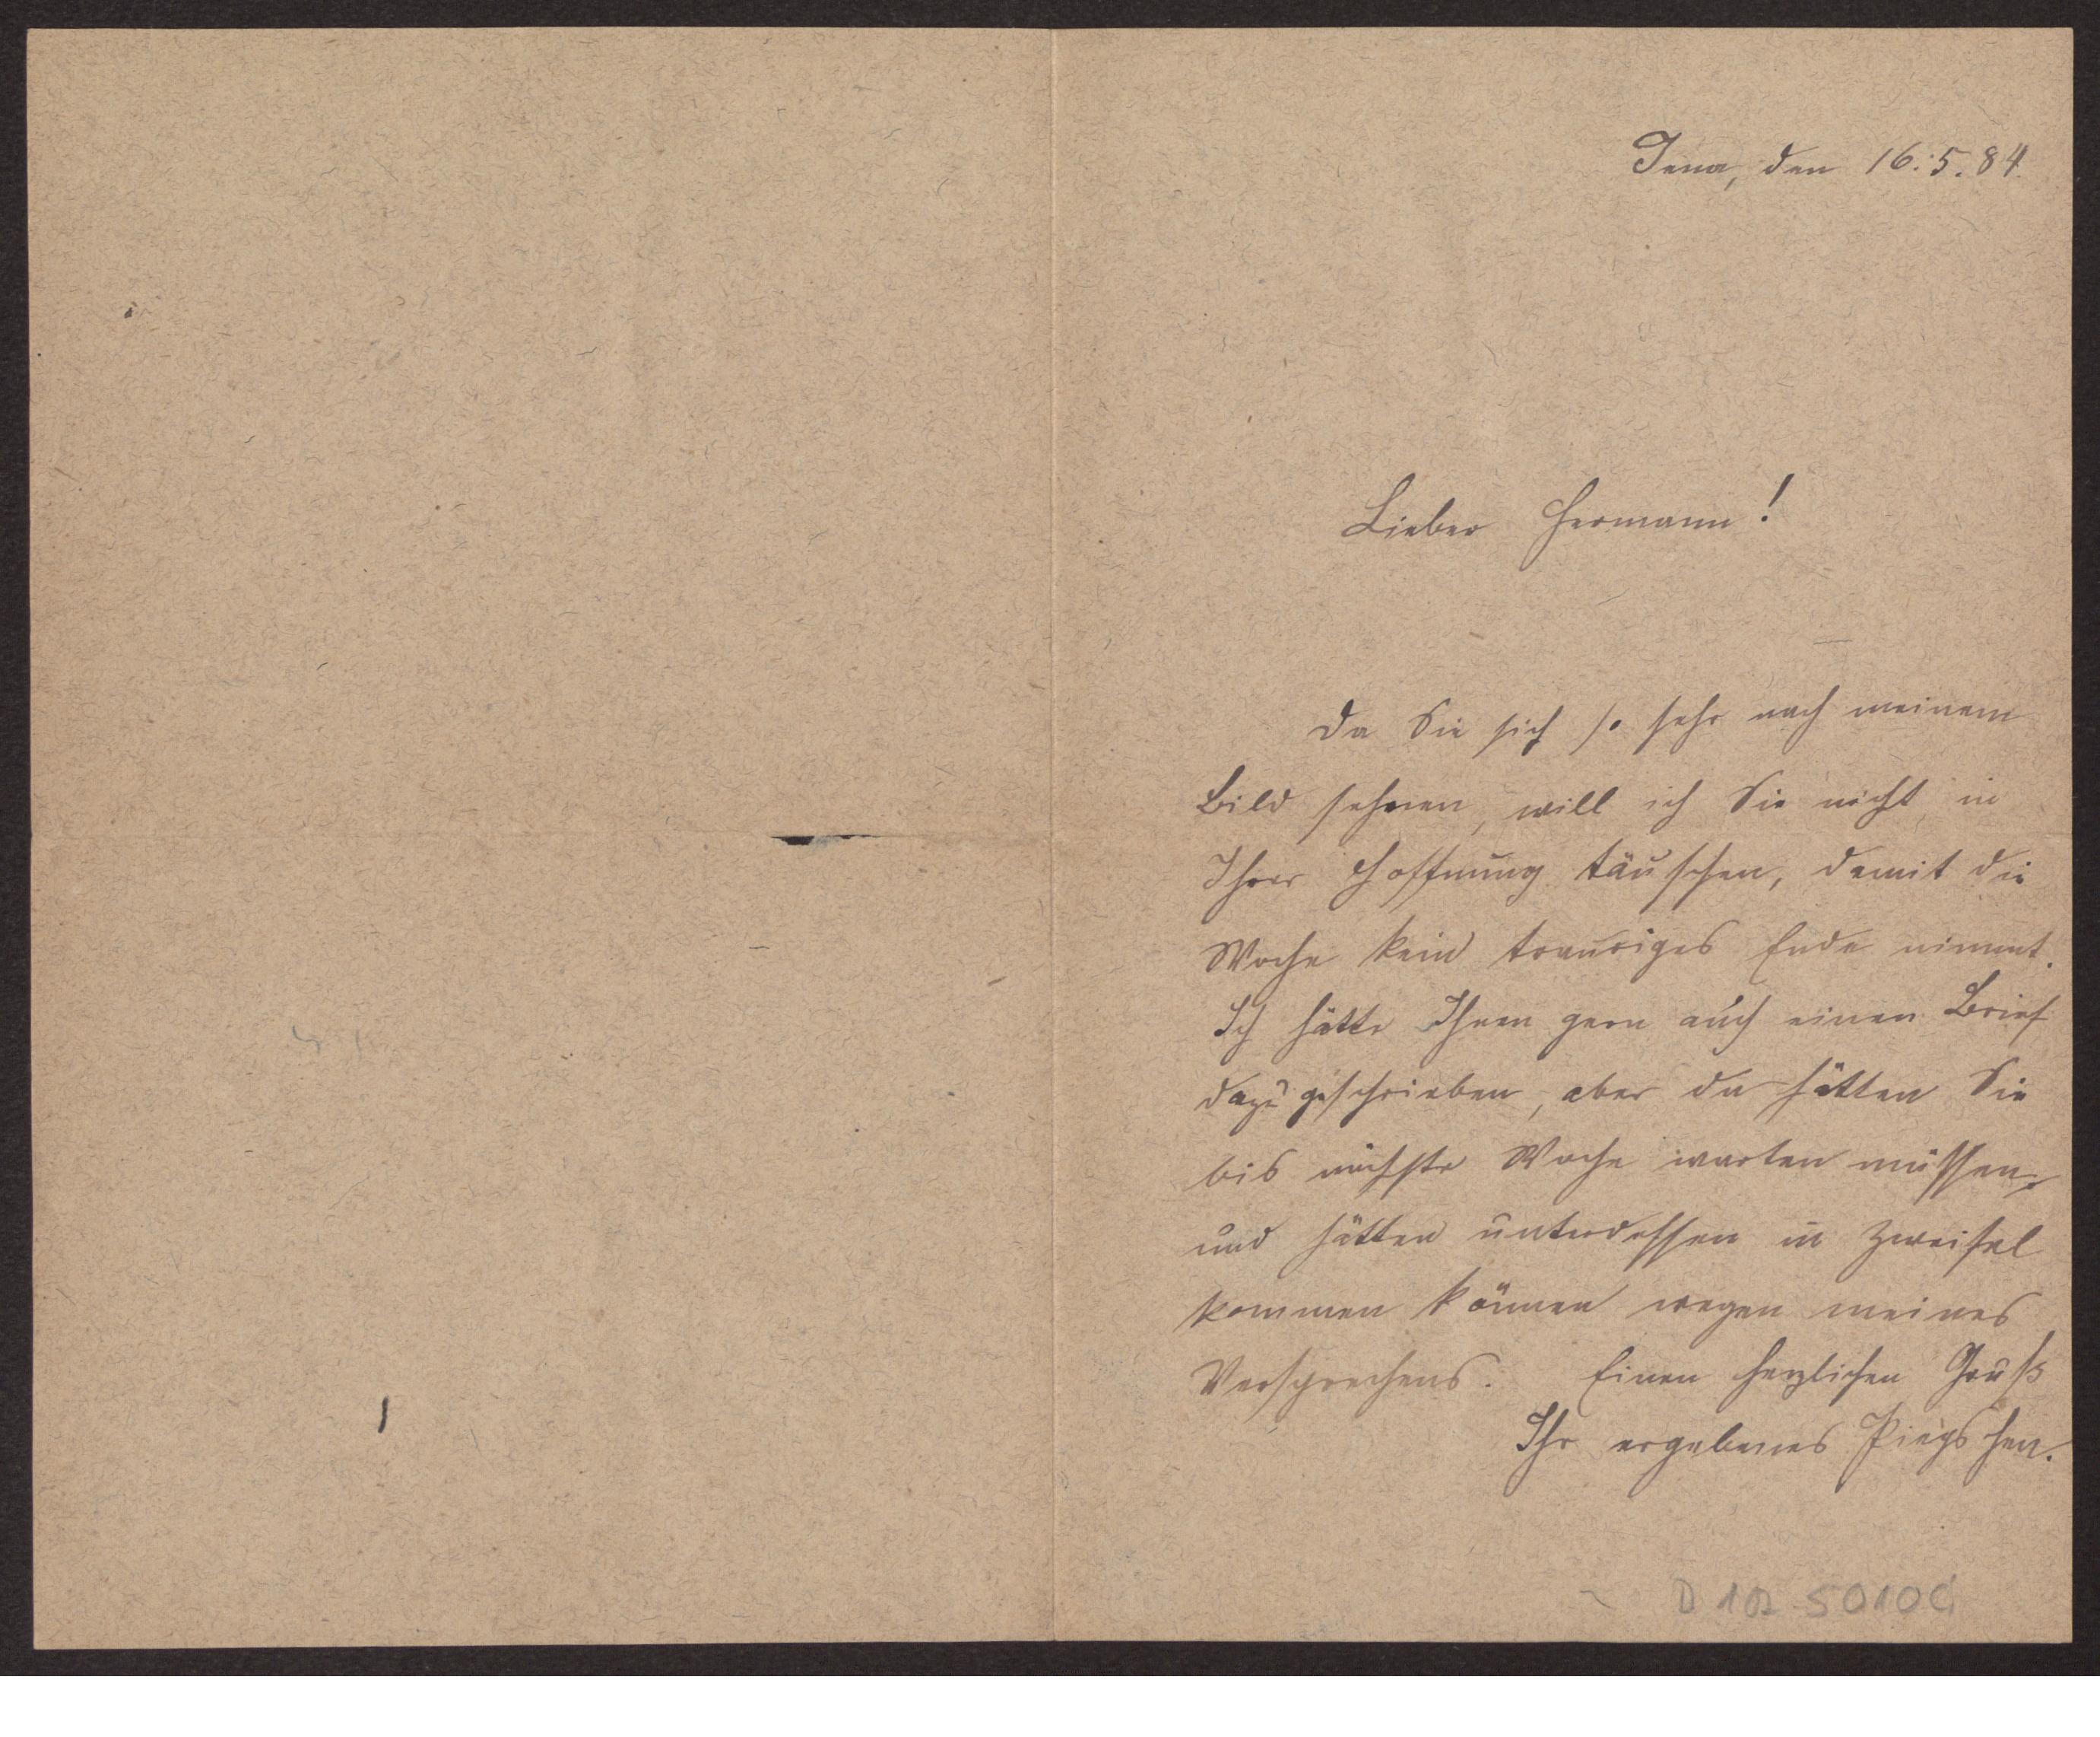 Jena, den 16.5.84.
Lieber Hermann!
Da Sie sich so sehr nach meinem
Bild sehnen, will ich Sie nicht in
Ihrer Hoffnung täuschen, damit die
Woche kein trauriges Ende nimmt.
Ich hätte Ihnen gern auch einen Brief
dazu geschrieben, aber da hätten Sie
bis nächste Woche warten müssen,
und hätten unterdessen in Zweifel
kommen können wegen meines
Versprechens. Einen herzlichen Gruß
Ihr ergebenes